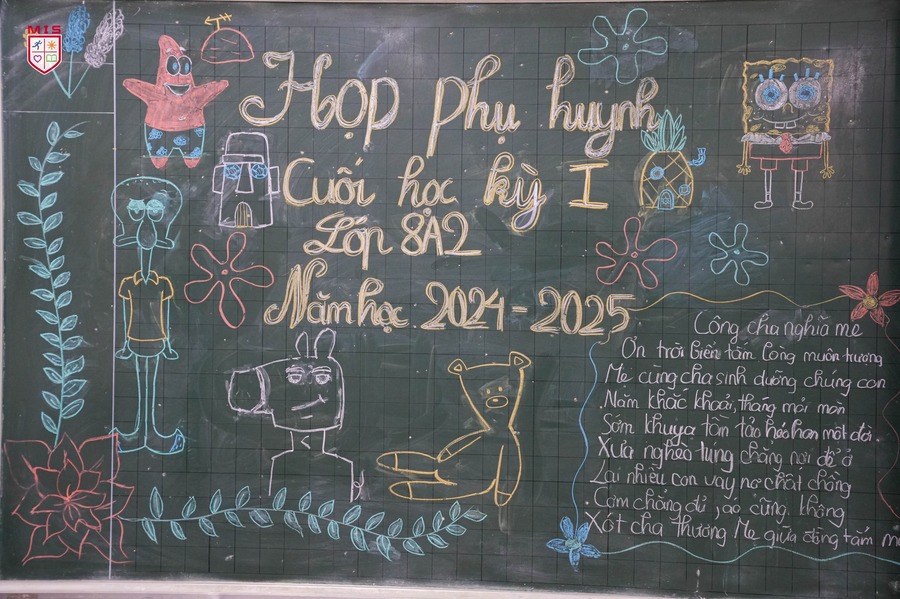 MIS
Họp phụ huynh
Cuối học kỳ I
Lớp 8A2
Năm học 2024-2025
Công cha nghĩa mẹ
Ơn trời biển tấm lòng muôn trượng
Mẹ cùng cha sinh dưỡng chúng con
Năm khắc khoải, tháng mỏi mòn
Sớm khuya tần tảo héo hon một đời.
Xưa nghèo túng chẳng nơi để ở
Lại nhiều con vay nợ chất chồng
Cơm chẳng đủ, áo cũng không
Xót cha thương Mẹ giữa dòng